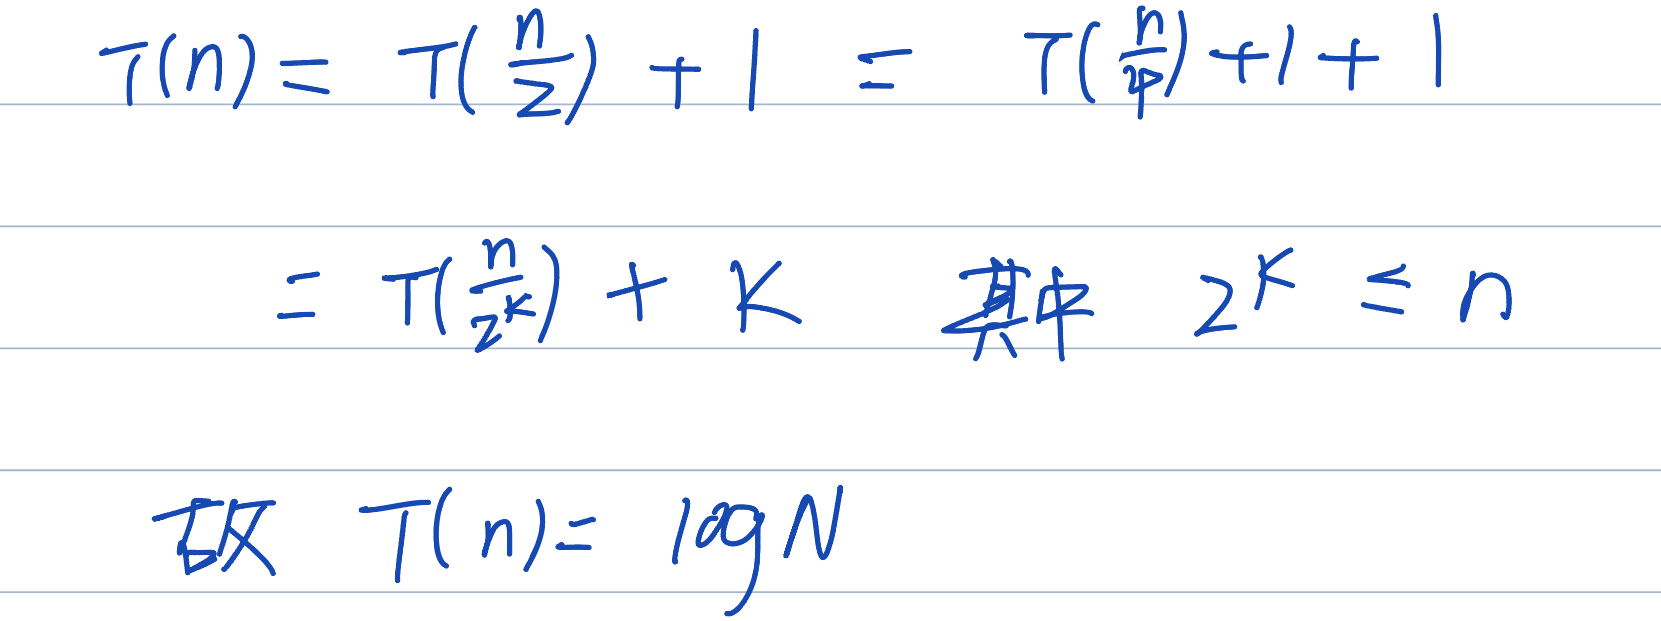 T(n) = T(n/2) + 1 = T(n/4) + 1 + 1
= T(n/2^K) + K 其中 2^K ≤ n
故 T(n) = log N